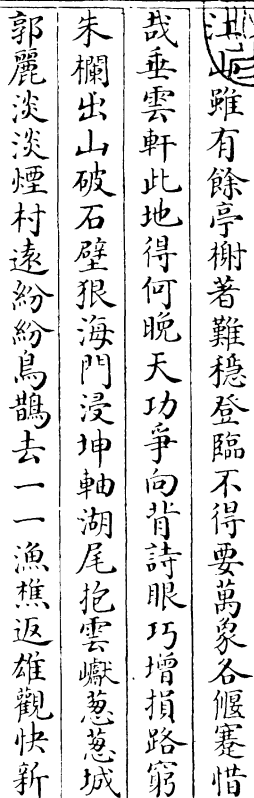 江山雖有餘亭榭著難穩登臨不得要萬象各偃蹇惜
哉垂雲軒此地得何晚天功爭向背詩眼巧增損路窮
朱欄出山破石壁狠海門浸坤軸湖尾抱雲巘葱葱城
郭麗淡淡煙村遠紛紛烏鵲去一一漁樵返雄觀快新